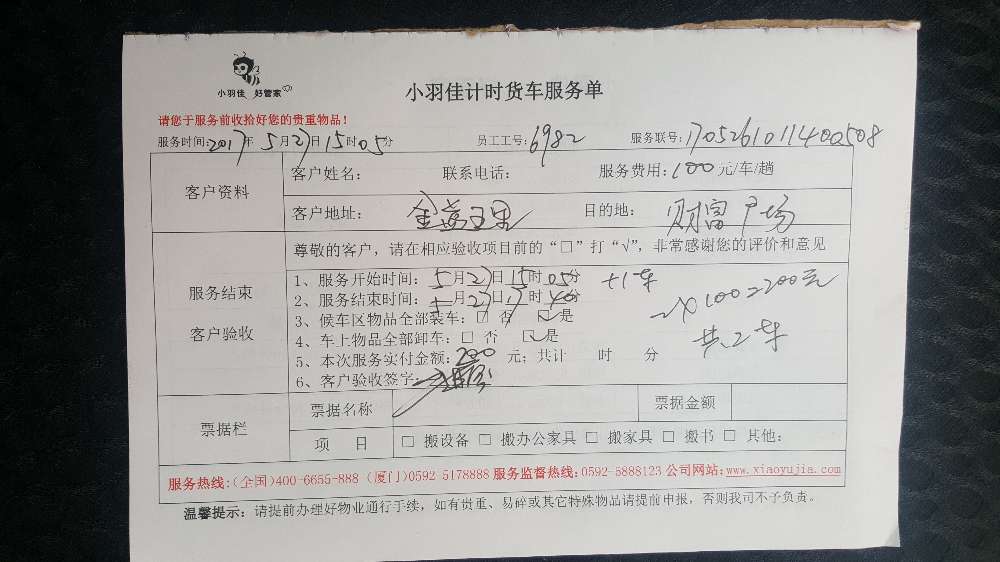 小羽佳 好管家
小羽佳计时货车服务单
请您于服务前收拾好您的贵重物品！
服务时间:2017年5月27日15时05分 员工工号:6982 服务联号:170526101140508
客户资料
客户姓名: 联系电话: 服务费用:100元/车/趟
客户地址: 目的地: 财富广场
服务结束
客户验收
尊敬的客户，请在相应验收项目前的“□”打“√”，非常感谢您的评价和意见
1、服务开始时间:5月27日15时05分 +1车
2、服务结束时间: 月27日17时40分 2×100=200元
3、候车区物品全部装车:□ 否 ☑是 共2车
4、车上物品全部卸车:□ 否 ☑是
5、本次服务实付金额:200 元；共计 时 分
6、客户验收签字:
票据栏
票据名称 票据金额
项 目 □ 搬设备 □ 搬办公家具 □ 搬家具 □ 搬书 □ 其他:
服务热线:(全国)400-6655-888 (厦门)0592-5178888 服务监督热线:0592-5888123 公司网站:www.xiaoyujia.com
温馨提示: 请提前办理好物业通行手续，如有贵重、易碎或其它特殊物品请提前申报，否则我司不予负责。